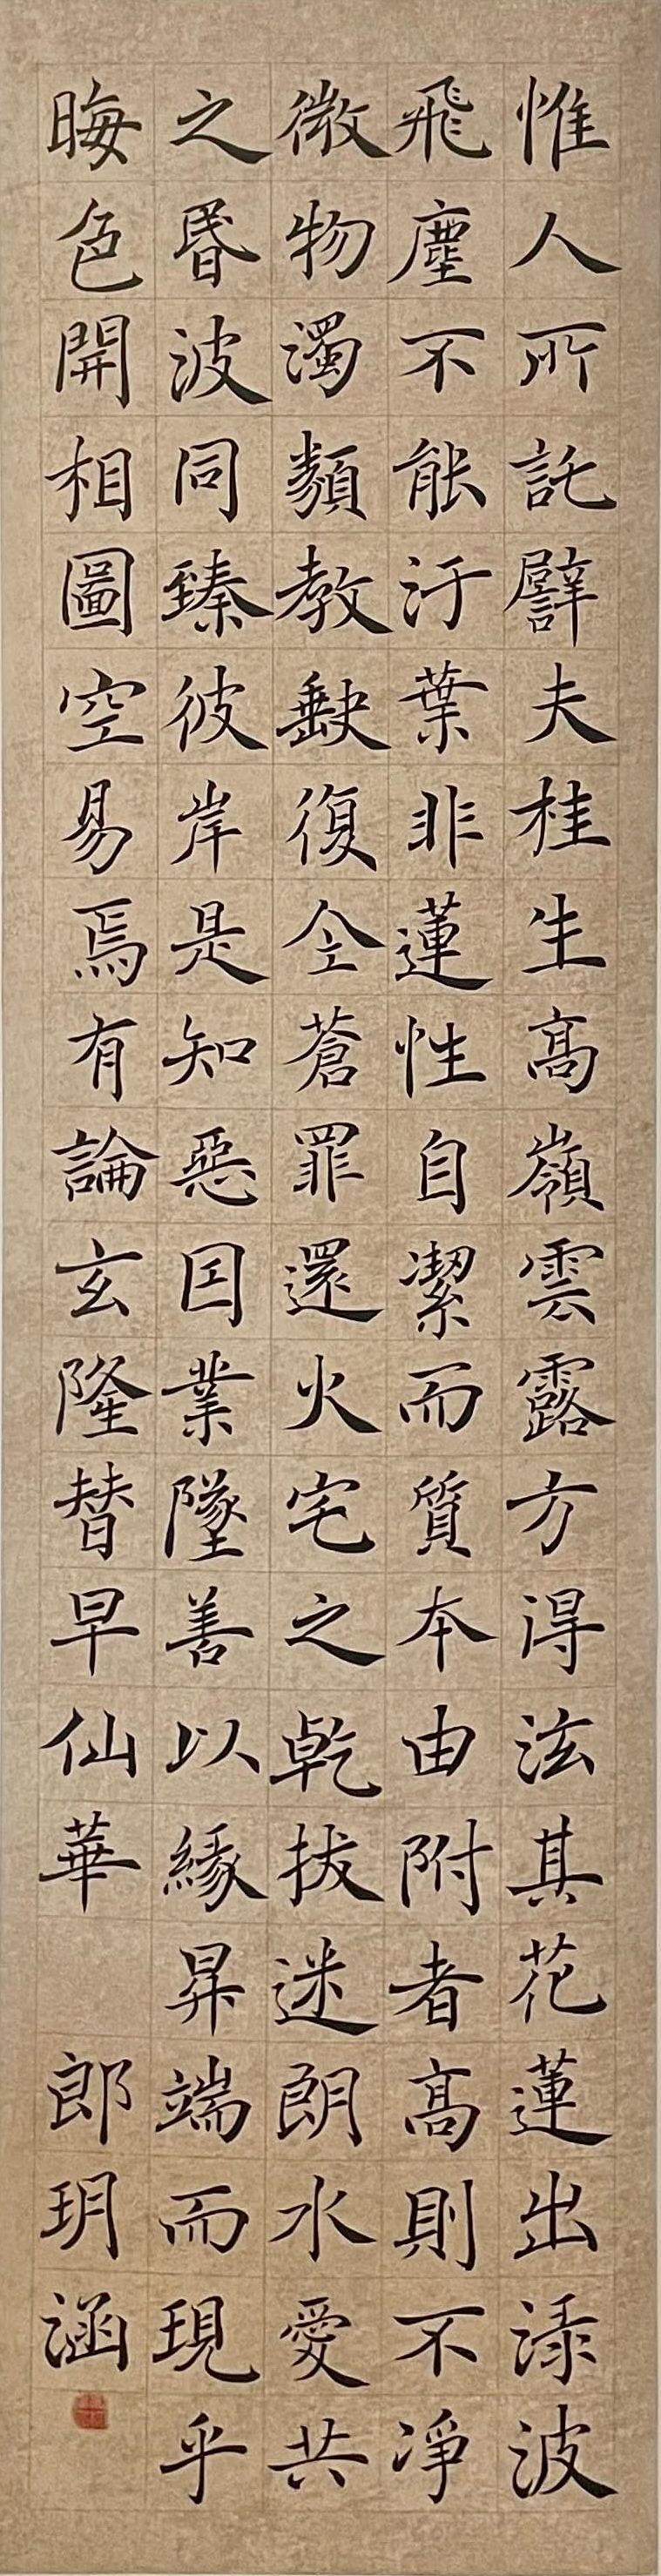 惟人所託譬夫桂生高嶺雲露方得泫其花蓮出渌波
飛塵不能汙葉非蓮性自潔而質本由附者高則不淨
微物濁類教缺復全蒼罪還火宅之乾拔迷朗水愛共
之昬波同臻彼岸是知惡因業墜善以緣昇端而現乎
晦色開相圖空易焉有論玄隆替早仙華
郎玥涵